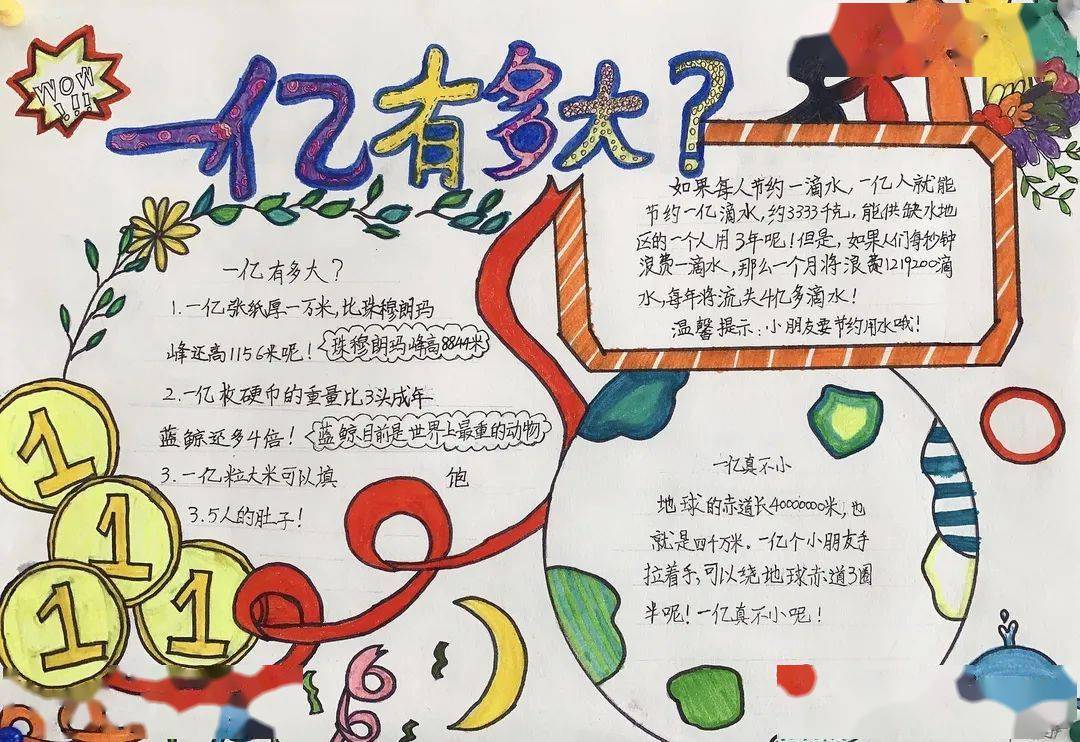 WOW
!!!
一亿有多大?
如果每人节约一滴水,一亿人就能
节约一亿滴水,约3333千克,能供缺水地
区的一个人用3年呢!但是,如果人们每秒钟
浪费一滴水,那么一个月将浪费1219200滴
水,每年将流失4亿多滴水!
温馨提示:小朋友要节约用水哦!
一亿有多大?
1.一亿张纸厚一万米,比珠穆朗玛
峰还高1156米呢!珠穆朗玛峰高8844米
2.一亿枚硬币的重量比3头成年
蓝鲸还多4倍!蓝鲸目前是世界上最重的动物
3.一亿粒大米可以填 饱
3.5人的肚子!
一亿真不小
地球的赤道长40000000米,也
就是四千万米。一亿个小朋友手
拉着手,可以绕地球赤道3圈
半呢!一亿真不小呢!
1
1
1
1